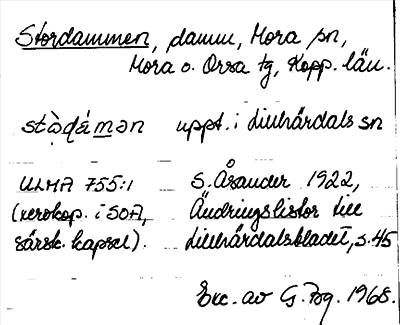 Stordammen, damm, Mora sn,
Mora o. Orsa tg, Kopp. län.
stò̀ḍámən uppt. i Lillhärdals sn
ULMA 755:1 S. Åsander 1922,
(xerokop. i SOA, Ändringslistor till
särsk. kapsel). Lillhärdalsbladet, s. 45
Exc. av G. Bg. 1968.